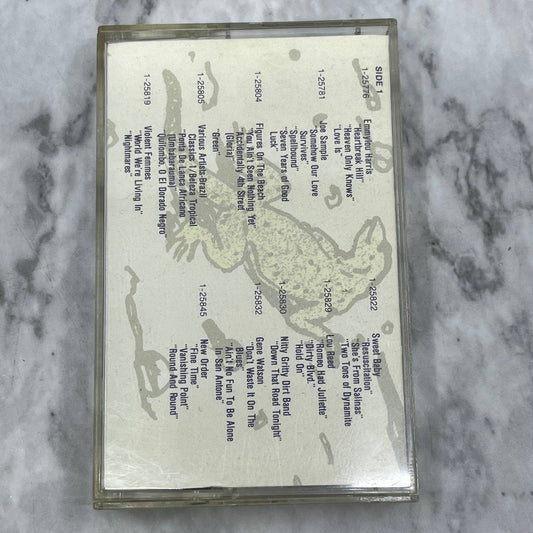 SIDE 1
1-25776 Emmylou Harris
"Heartbreak Hill"
"Heaven Only Knows"
"Love Is"
1-25781 Joe Sample
"Somehow Our Love
Survives"
"Spellbound"
"Seven Years of Good
Luck"
1-25804 Figures On The Beach
"You Ain't Seen Nothing Yet"
"Accidentally 4th Street
(Gloria)"
"Green"
1-25805 Various Artists-Brazil
Classics 1/Beleza Tropical
"Ponta De Lanca Africano
(Umbabarauma)"
"Quilombo, O El Dorado Negro"
1-25819 Violent Femmes
"World We're Living In"
"Nightmares"
1-25822 Sweet Baby
"Resuscitation"
"She's From Salinas"
"Two Tons of Dynamite"
1-25829 Lou Reed
"Romeo Had Juliette"
"Dirty Blvd."
"Hold On"
1-25830 Nitty Gritty Dirt Band
"Down That Road Tonight"
1-25832 Gene Watson
"Don't Waste It On The
Blues"
"Ain't No Fun To Be Alone
In San Antone"
1-25845 New Order
"Fine Time"
"Vanishing Point"
"Round And Round"